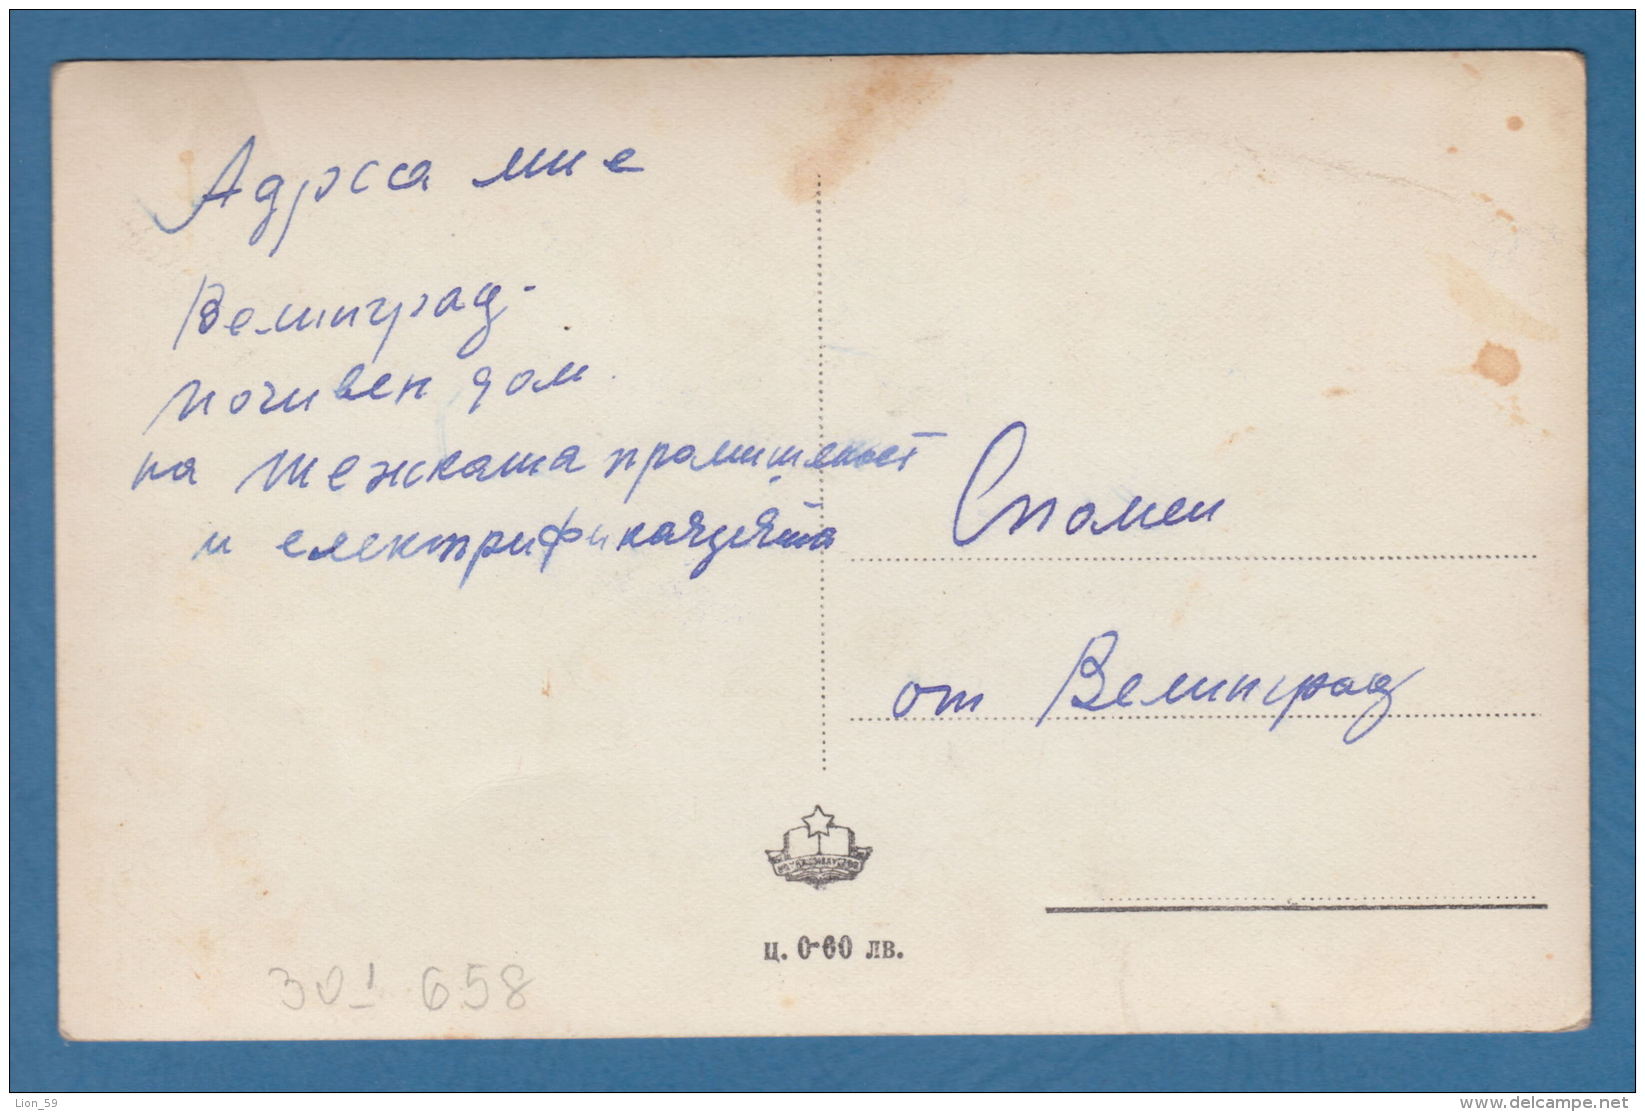 Адреса ми е
Велинград -
почивен дом
на тежката промишленост
и електрификацията
Спомен
от Велинград
ц. 0-60 лв.
301 658
Lion_59
www.delcampe.net